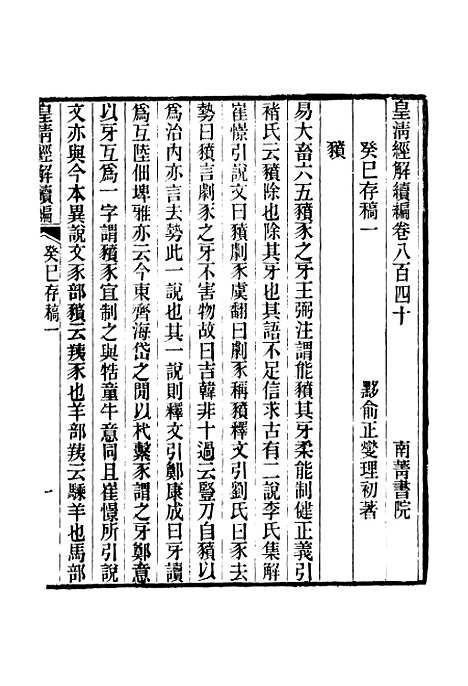 皇淸經解續編卷八百四十　南菁書院
癸巳存稿一　黟俞正燮理初著
豶
易大畜六五豶豕之牙王弼注謂能豶其牙柔能制健正義引
褚氏云豶除也除其牙也其語不足信求古有二說李氏集解
崔憬引說文曰豶劇豕虞翻曰劇豕稱豶釋文引劉氏曰豕去
勢曰豶言劇豕之牙不害物故曰吉韓非十過云豎刀自豶以
爲治內亦言去勢此一說也其一說則釋文引鄭康成曰牙讀
爲互陸佃埤雅亦云今東齊海岱之閒以杙繫豕謂之牙鄭意
以牙互爲一字謂豶豕宜制之與牿童牛意同且崔憬所引說
文亦與今本異說文豕部豶云羠豕也羊部羠云騬羊也馬部
皇淸經解續編　癸巳存稿一　一